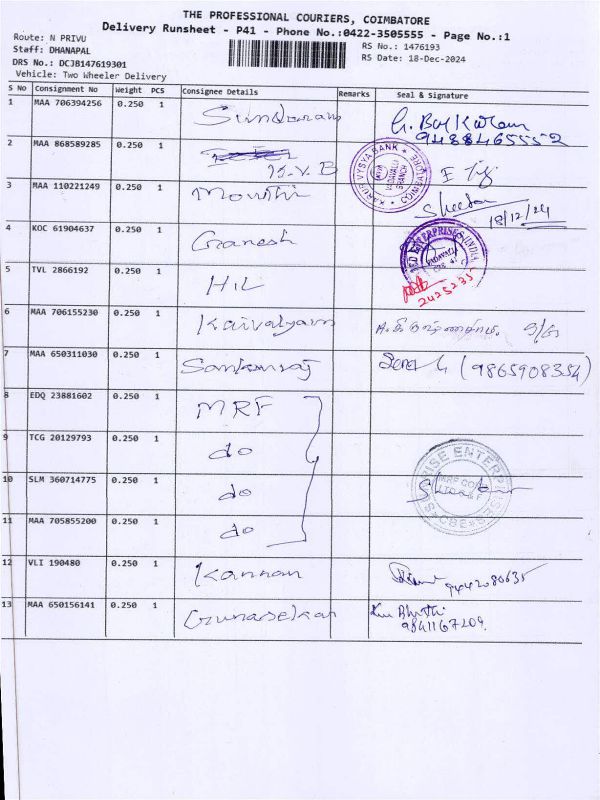 THE PROFESSIONAL COURIERS, COIMBATORE
Delivery Runsheet - P41 - Phone No.:0422-3505555 - Page No.:1
Route: N PRIVU
RS No.: 1476193
Staff: DHANAPAL
RS Date: 18-Dec-2024
DRS No.: DCJB147619301
Vehicle: Two Wheeler Delivery
S No Consignment No Weight PCS Consignee Details Remarks Seal & Signature
1 MAA 706394256 0.250 1 Sundaram
9488465552
2 MAA 868589285 0.250 1 K.V.B
KARUR VYSYA BANK COIMBATORE VADAVALLI BRANCH
3 MAA 110221249 0.250 1 Mouthi
18/12/24
4 KOC 61904637 0.250 1 Ganesh
ENTERPRISES VADAVALLI
5 TVL 2866192 0.250 1 HIL
6 MAA 706155230 0.250 1 Kaivalyam
7 MAA 650311030 0.250 1 Sankarraj (9865908354)
8 EDQ 23881602 0.250 1 MRF
9 TCG 20129793 0.250 1 do
10 SLM 360714775 0.250 1 do
11 MAA 705855200 0.250 1 do
12 VLI 190480 0.250 1 Kannan 9442080635
13 MAA 650156141 0.250 1 Gunasekar
9841167209